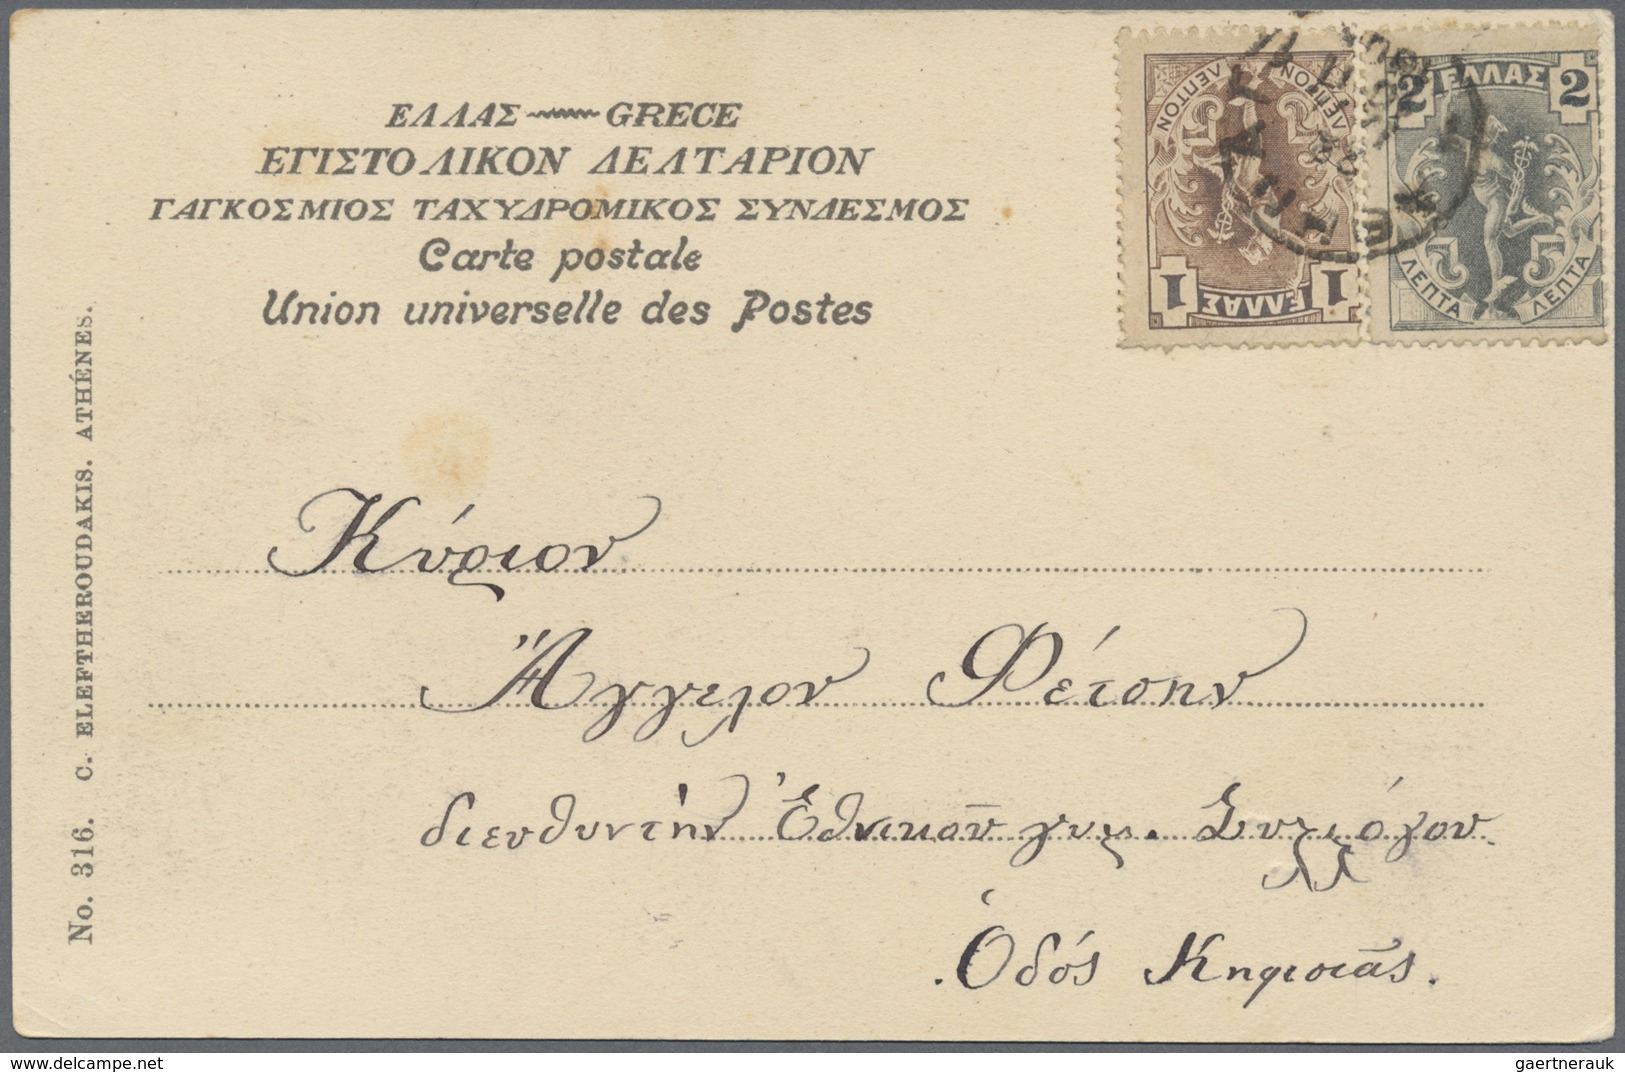 ΕΛΛΑΣ GRECE
ΕΓΙΣΤΟΛΙΚΟΝ ΔΕΛΤΑΡΙΟΝ
ΓΑΓΚΟΣΜΙΟΣ ΤΑΧΥΔΡΟΜΙΚΟΣ ΣΥΝΔΕΣΜΟΣ
Carte postale
Union universelle des Postes
ΛΕΠΤΟΝ ΛΕΠΤΟΝ
1 ΕΛΛΑΣ 1
2 ΕΛΛΑΣ 2
ΛΕΠΤΑ ΛΕΠΤΑ
No. 316. C. ELEFTHEROUDAKIS. ATHÉNES.
Κύριον
Ἄγγελον Φέτσην
διευθυντὴν Ἐθνικοῦ γυμ. Συλλόγου
Ὁδός Κηφισιᾶς.
www.delcampe.net
gaertnerauk